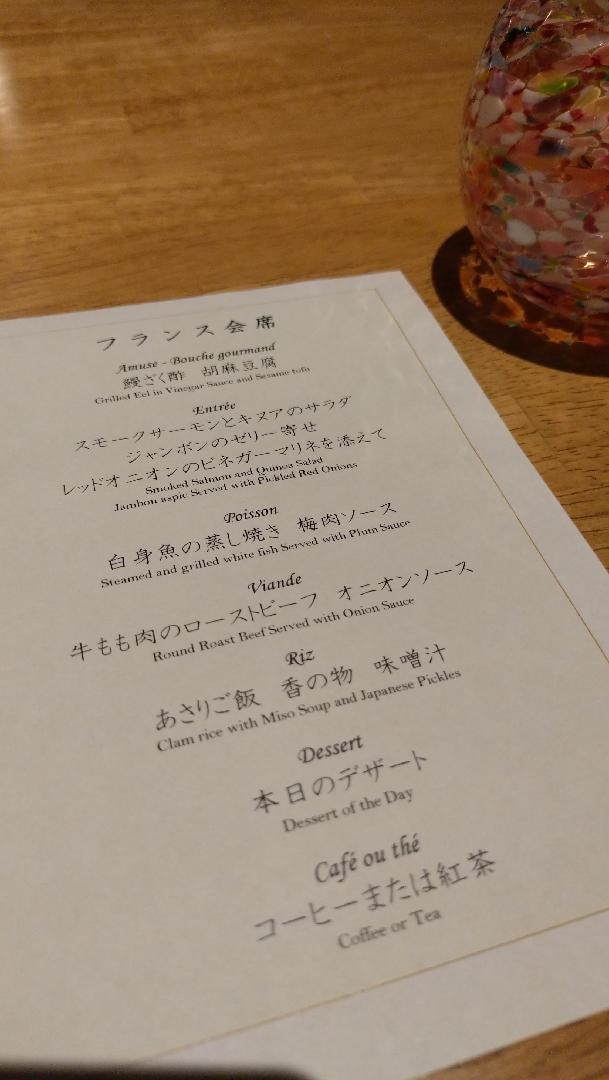 フランス会席
Amuse - Bouche gourmand
鰻ざく酢 胡麻豆腐
Grilled Eel in Vinegar Sauce and Sesame tofu
Entrée
スモークサーモンとキヌアのサラダ
ジャンボンのゼリー寄せ
レッドオニオンのビネガーマリネを添えて
Smoked Salmon and Quinoa Salad
Jambon aspic Served with Pickled Red Onions
Poisson
白身魚の蒸し焼き 梅肉ソース
Steamed and grilled white fish Served with Plum Sauce
Viande
牛もも肉のローストビーフ オニオンソース
Round Roast Beef Served with Onion Sauce
Riz
あさりご飯 香の物 味噌汁
Clam rice with Miso Soup and Japanese Pickles
Dessert
本日のデザート
Dessert of the Day
Café ou thé
コーヒーまたは紅茶
Coffee or Tea